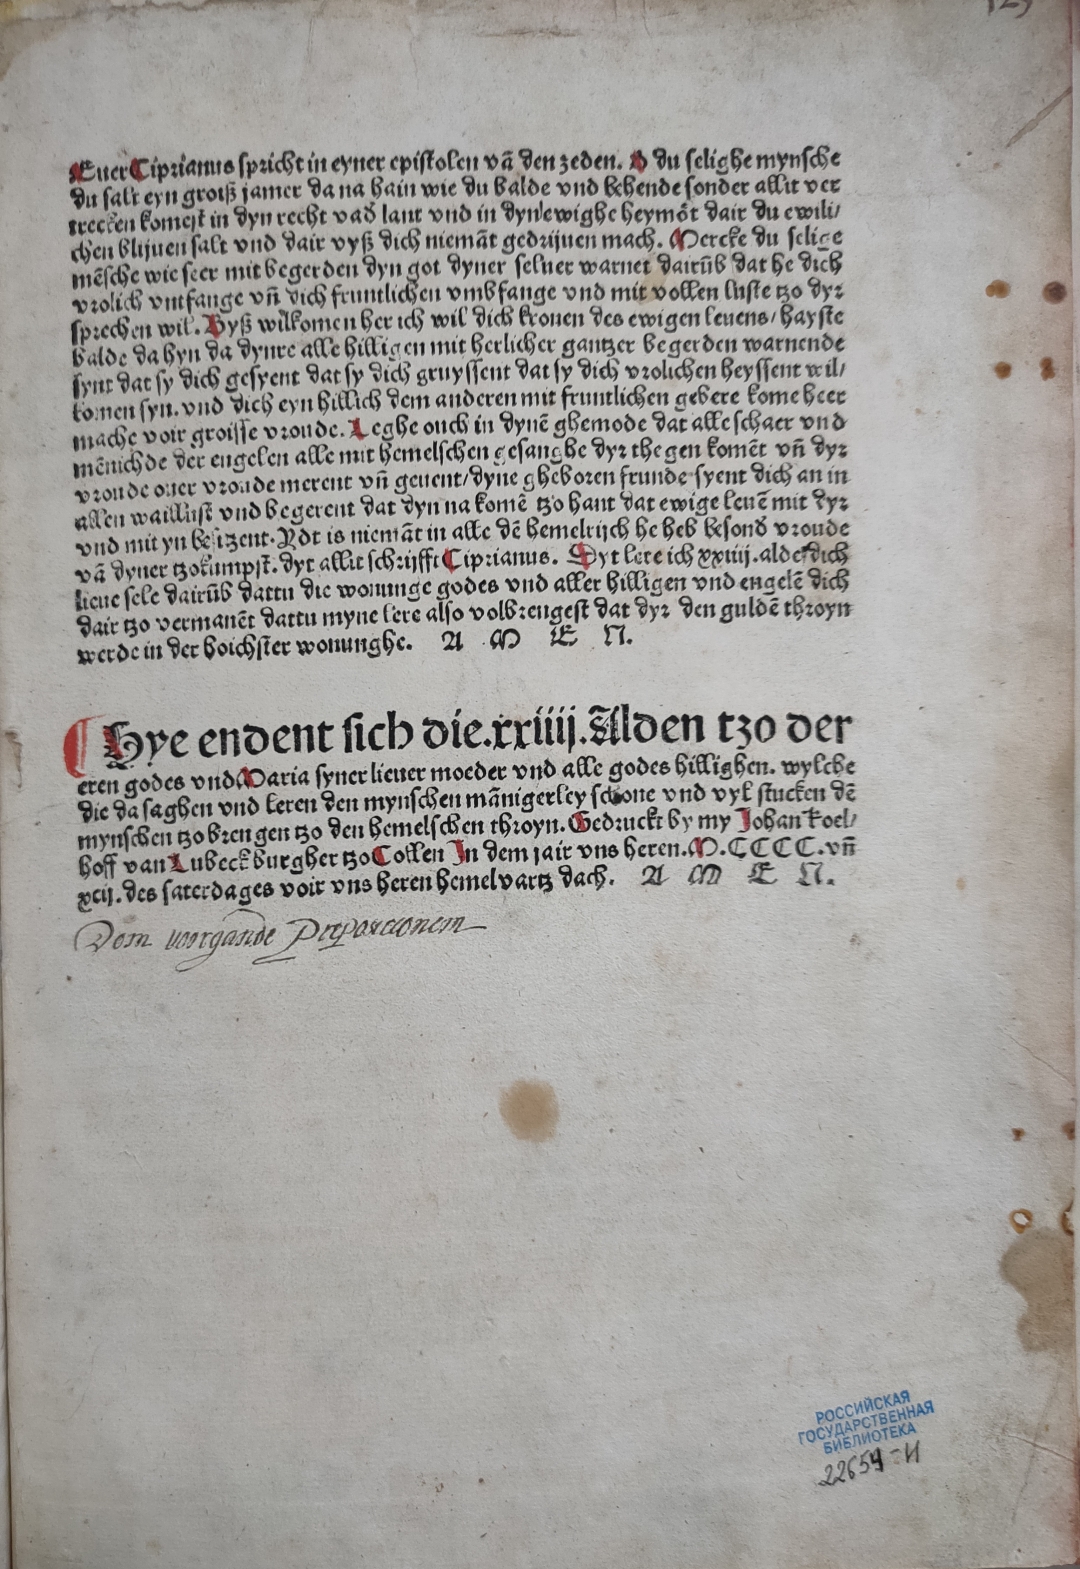 Euer Ciprianus spricht in eyner epistolen vā den zeden. O du selighe mynsche
du salt eyn groiß jamer da na hain wie du balde vnd behende sonder allit ver
trecken komest in dyn recht vad̕ lant vnd in dyn ewighe heymōt dair du ewili/
chen blijuen salt vnd dair vyß dich niemāt gedrijuen mach. Mercke du selige
mēsche wie seer mit begerden dyn got dyner seluer warnet dairūb dat he dich
vrolich vntfange vñ dich fruntlichen vmbfange vnd mit vollen luste tzo dyr
sprechen wil. Byß wilkomen her ich wil dich kronen des ewigen leuens/ hayste
balde da hyn da dynre alle hilligen mit herlicher gantzer begerden warnende
synt dat sy dich gesyent dat sy dich gruyssent dat sy dich vrolichen heyssent wil/
komen syn. vnd dich eyn hillich dem anderen mit fruntlichen gebere kome heer
mache voir groisse vroude. Leghe ouch in dynē ghemode dat alle schaer vnd
mēnichde der engelen alle mit hemelschen gesanghe dyr the gen komēt vñ dyr
vroude ouer vroude merent vñ geuent/ dyne gheboren frunde syent dich an in
allen waillust vnd begerent dat dyn na komē tzo hant dat ewige leuē mit dyr
vnd mit yn besitzent. Vdt is niemāt in alle dē hemelrijch he heb besond̕ vroude
vā dyner tzokumpst. dyt allit schrijfft Ciprianus. Dyt lere ich xxiiij. alde dich
lieue sele dairūb dattu die wonunge godes vnd aller hilligen vnd engelē dich
dair tzo vermanēt dattu myne lere also volbrengest dat dyr den guldē throyn
werde in der hoichster wonunghe. A M E N.
Hye endent sich die .xxiiij. Alden tzo der
eren godes vnd Maria syner lieuer moeder vnd alle godes hillighen. wylche
die da saghen vnd leren den mynschen mānigerley schone vnd vyl stucken dē
mynschen tzo brengen tzo den hemelschen throyn. Gedruckt by my Johan koel/
hoff van Lubeck burgher tzo Collen In dem jair vns heren. M.CCCC. vñ
xcij. des saterdages voir vns heren hemelvartz dach. A M E N.
Dom voorgande
РОССИЙСКАЯ
ГОСУДАРСТВЕННАЯ
БИБЛИОТЕКА
22654-И